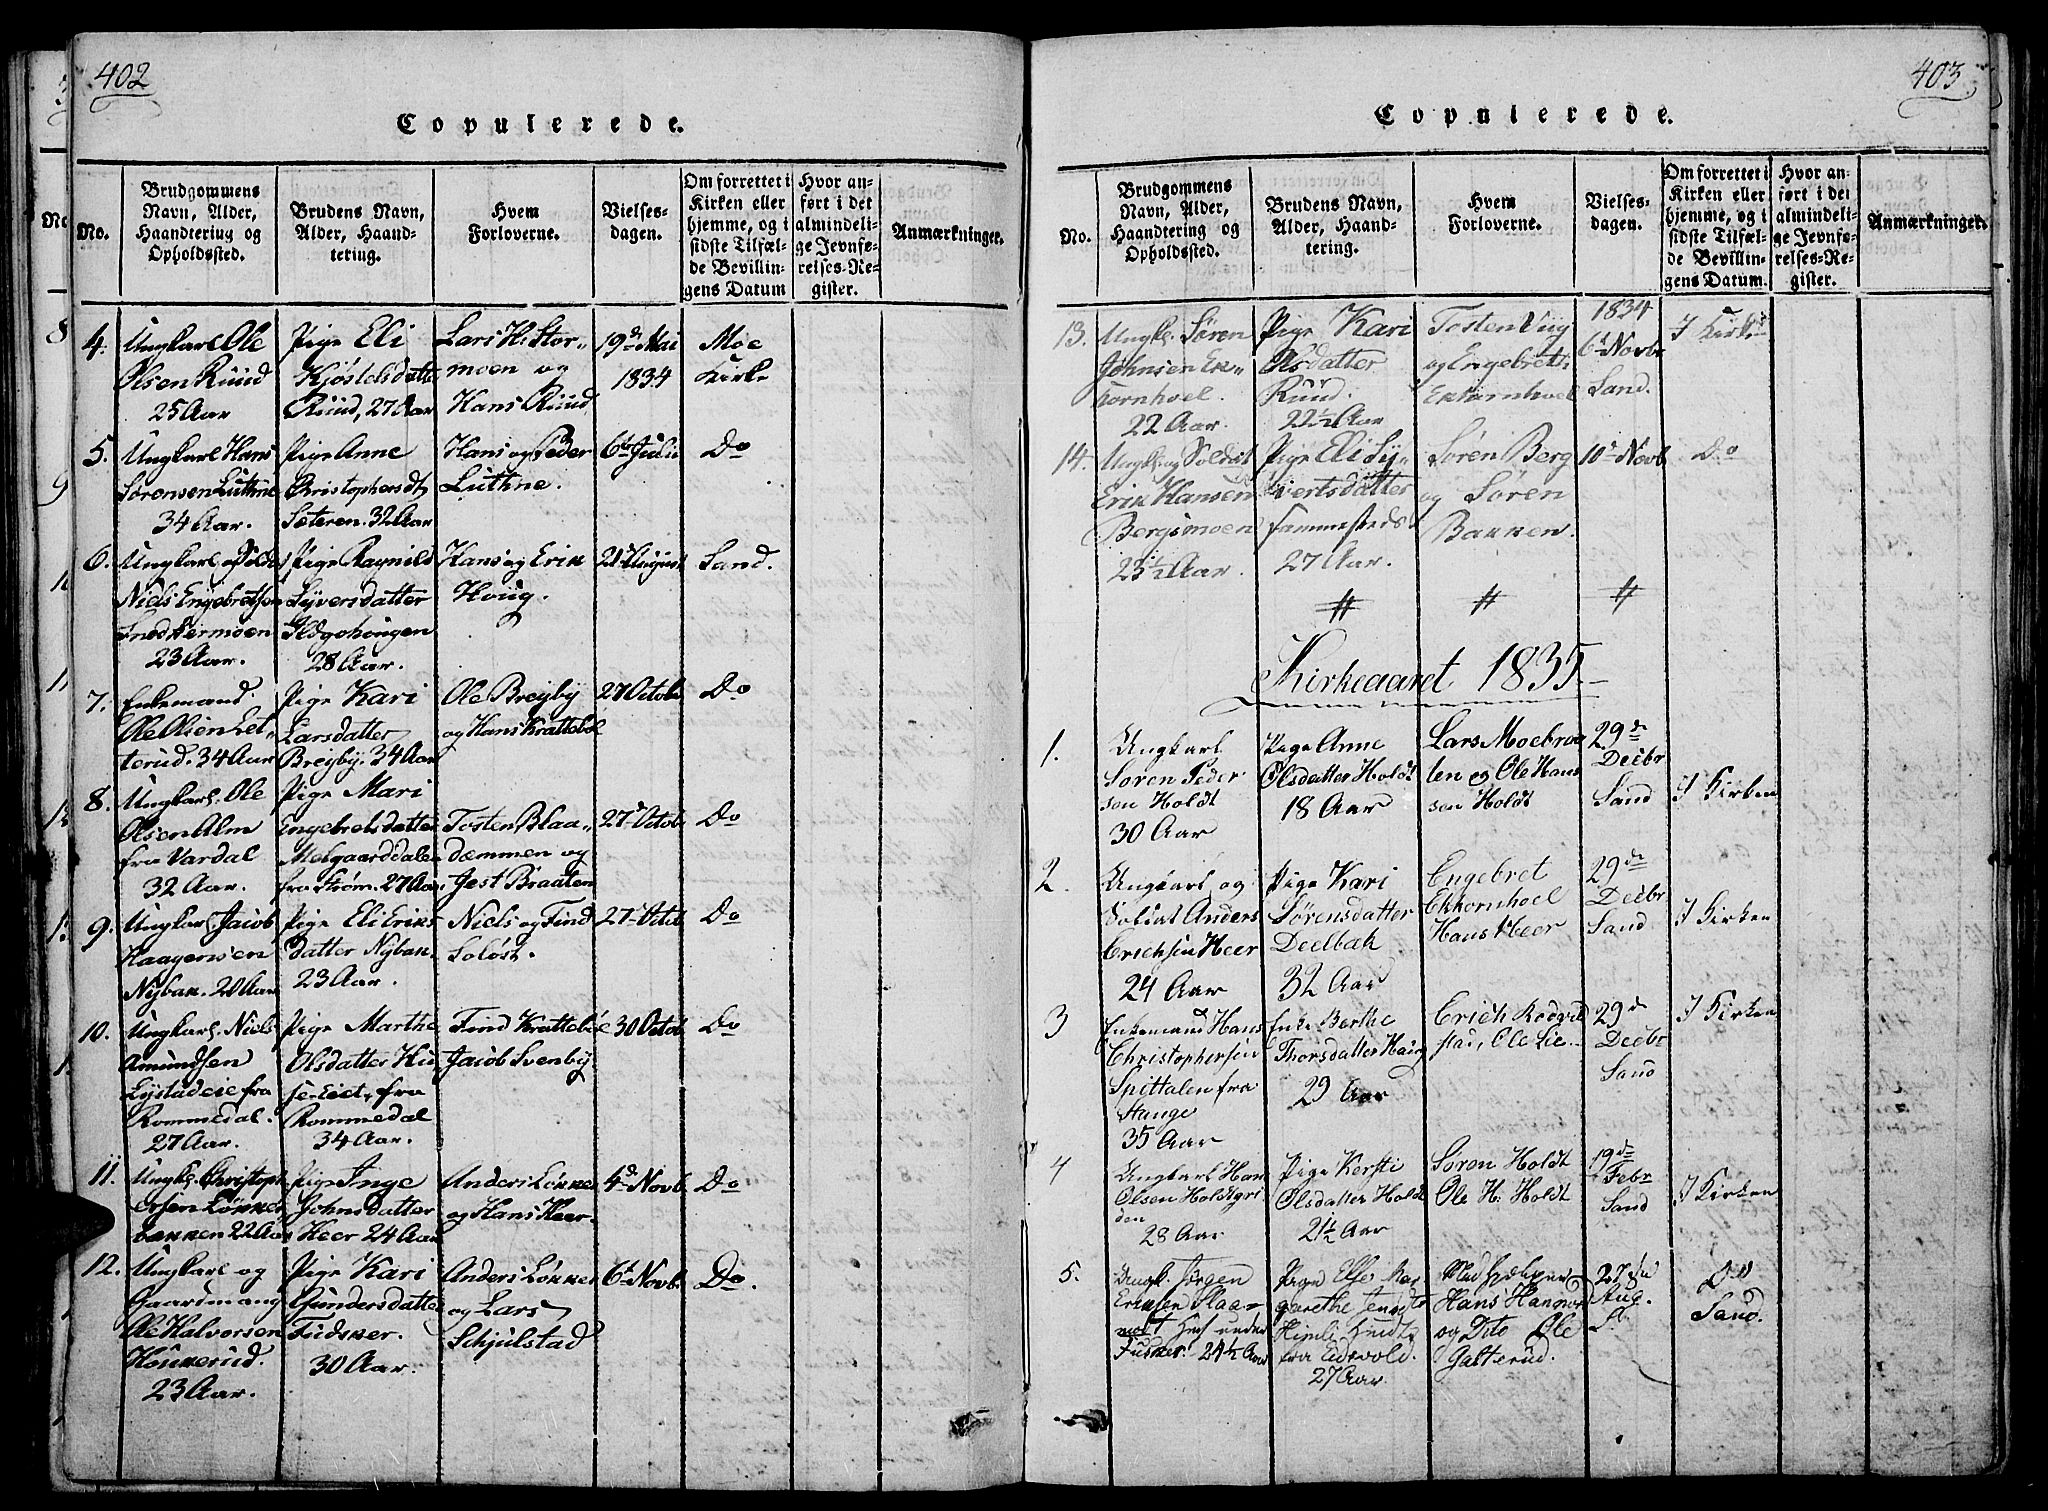 402
Copulerede.
No.
Brudgommens
Navn, Alder,
Haandtering og
Opholdssted.
Brudens Navn,
Alder, Haand-
tering.
Hvem
Forloverne.
Vielses-
dagen.
Om forrettet i
Kirken eller
hjemme, og i
sidste Tilfæl-
de Bevillin-
gens Datum
Hvor an-
ført i det
almindeli-
ge Jevnfø-
relses-Re-
gister.
Anmærkninger.
4.
Ungkarl Ole
Olsen Ruud
25 Aar
Pige Eli
Kjöstelsdatte
Ruud, 27 Aar
Lars H. Stor-
moen og
Hans Ruud
19d Mai
1834
Moe
Kirke
5.
Ungkarl Hans
Sörensen Luthne
34 Aar.
Pige Anne
Christophersdt
Sæteren. 32 Aar
Hans og Peder
Luthne.
6t Julii
Do
6.
Ungkarl og Solda
Niels Engebretsen
23 Aar.
Pige Ragnild
Syversdatter
28 Aar.
Hans og Erik
Houg.
21d August
Sand.
7.
Enkemand
Ole Olsen Let-
terud. 34 Aar
Pige Kari
Larsdatter
Breyby. 34 Aar
Ole Breyby
og Hans Kratteböl
27 Octob
Do
8.
Ungkarl. Ole
Olsen Alm
fra Vardal
32 Aar.
Pige Mari
Engebretsdatter
Melgaarddalen
fra Ström. 27 Aar.
Tosten Blaa-
dæmmen og
Jest Braaten
27d Octob
Do
9.
Ungkarl Jacob
Haagensen
Nybak. 20 Aar
Pige Eli Eriks
datter Nybak.
23 Aar.
Niels og Find
Solöst.
27d Octob
Do
10.
Ungkarl. Niels
Amundsen
Lystadeie fra
Rommedal.
27 Aar.
Pige Marthe
Olsdatter Hu
se-Eiet, fra
Rommedal
34 Aar.
Find Kratteböl
Jacob Svenby
30 Octob
Do
11.
Ungk. Christoph
ersen Lökker
bakken 22 Aar
Pige Inge
Johnsdatter
Heer 24 Aar
Anders Lökker
og Hans Heer.
4d Novb.
Do
12.
Ungkarl og
Gaardmand
Ole Halvorsen
Houkerud.
23 Aar.
Pige Kari
Gundersdatter
Fudsker.
30 Aar.
Anders Lökker
og Lars
Schjulstad
6t Novb.
Do.
403
Copulerede.
No.
Brudgommens
Navn, Alder,
Haandtering og
Opholdssted.
Brudens Navn,
Alder, Haand-
tering.
Hvem
Forloverne.
Vielses-
dagen.
Om forrettet i
Kirken eller
hjemme, og i
sidste Tilfæl-
de Bevillin-
gens Datum.
Hvor an-
ført i det
almindeli-
ge Jevnfø-
relses-Re-
gister.
Anmærkninger.
13.
Ungk. Sören
Johnsen Ek-
kornhoel.
22 Aar
Pige Kari
Olsdatter
Ruud.
22½ Aar
Tosten Viig
og Engebret
Ekkornhoel
1834
6t Novbr
Sand.
I Kirke
14.
Ungk. og Soldat
Erik Hansen
Bergsmoen
23½ Aar.
Pige Eli Sy-
vertsdatter
sammesteds
27 Aar.
Sören Berg
og Sören
Bakken.
10d Novb.
Do
# # #
Kirkeaaret 1835
1.
Ungkarl
Sören Peder
sen Holdt
30 Aar
Pige Anne
Olsdatter Holdt
18 Aar
Lars Moebraa
ten og Ole Hans
sen Holdt
29de
Decbr
Sand
I Kirken
2.
Ungkarl og
Soldat Anders
Erichsen Heer
24 Aar
Pige Kari
Sörensdatter
Deelbak
32 Aar
Engebret
Ekkornhoel
Hans Heer
29de
Decbr
Sand
I Kirken
3
Enkemand Hans
Christophersen
Spittalen fra
Stange
35 Aar
Enke Berthe
Thorsdatter Haug
29 Aar
Erich Rodvel
stad, Ole Lie.
29de
Decbr
Sand
I Kirken
4
Ungkarl Han
Olsen Holdtgri
den
28 Aar
Pige Kersti
Olsdatter Holdt
21½ Aar
Sören Holdt
Ole H: Holdt
19de
Febr
Sand
I Kirken
5.
Ungk. Jörgen
Eriksen Slaa-
under
Fusker. 24½ Aar
Pige Else Mar
garethe
fra Eidsvold.
27 Aar.
Hans
og Dito Ole
Galterud.
27de
Aug.
Do
Sand.